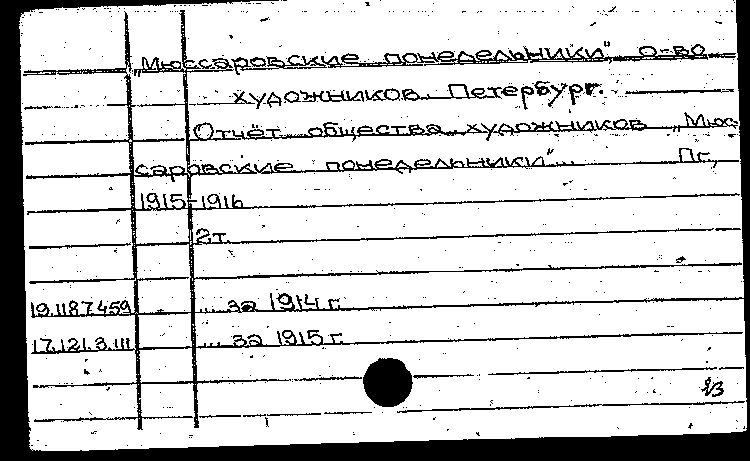 „Мюссаровские понедельники", о-во
художников. Петербург.
Отчёт общества художников „Мюс-
саровские понедельники"... Пг.,
1915-1916
2т.
19.118.7.459 ... за 1914 г.
17.121.3.111 ... за 1915 г.